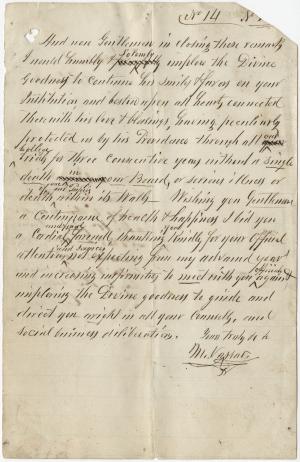 No 14
And now Gentlemen in closing these remarks
I would humbly & solemnly implore the Divine
Goodness to continue his smiles & favors on your
Institution and bestow upon all hearts connected
Therewith his love & blessings, having peculiarly
protected us by his Providence through all our
College Trials for three Consecutive years without a single
death in our Board, or serious illness or
death within its Walls. Wishing you Gentlemen
a Continuance of health & happiness I bid you
a Cordial farewell, thanking you kindly for your Official
attention not expecting from my advanced years
and increasing infirmity to meet with you officially again
imploring the Divine goodness to guide and
direct you aright in all your Counsels, and
social business deliberation.
Yours truly
M. Vassar